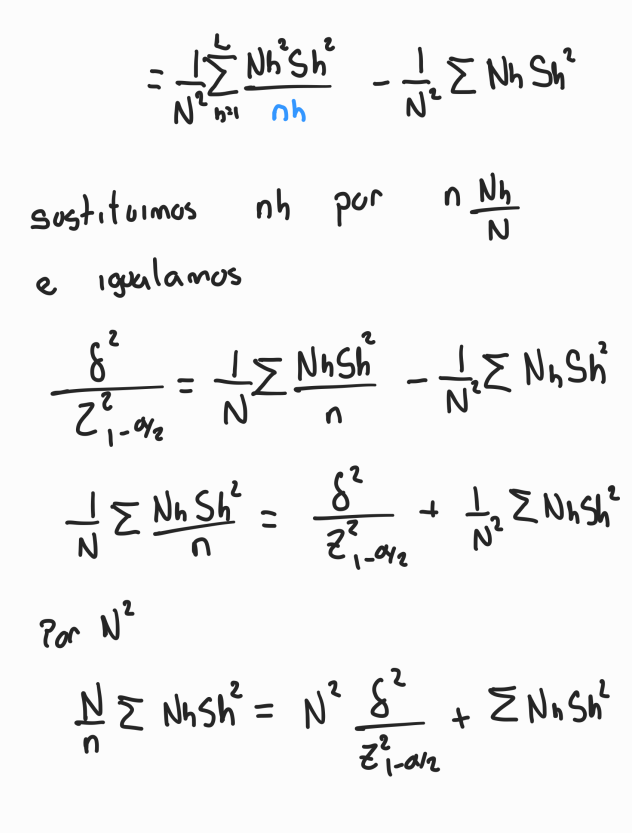 = 1/N² Σ_{h=1}^{L} Nh² Sh² / nh - 1/N² Σ Nh Sh²
sustituimos nh por n Nh/N
e igualamos
δ² / Z²_{1-α/2} = 1/N Σ Nh Sh² / n - 1/N² Σ Nh Sh²
1/N Σ Nh Sh² / n = δ² / Z²_{1-α/2} + 1/N² Σ Nh Sh²
Por N²
N/n Σ Nh Sh² = N² δ² / Z²_{1-α/2} + Σ Nh Sh²